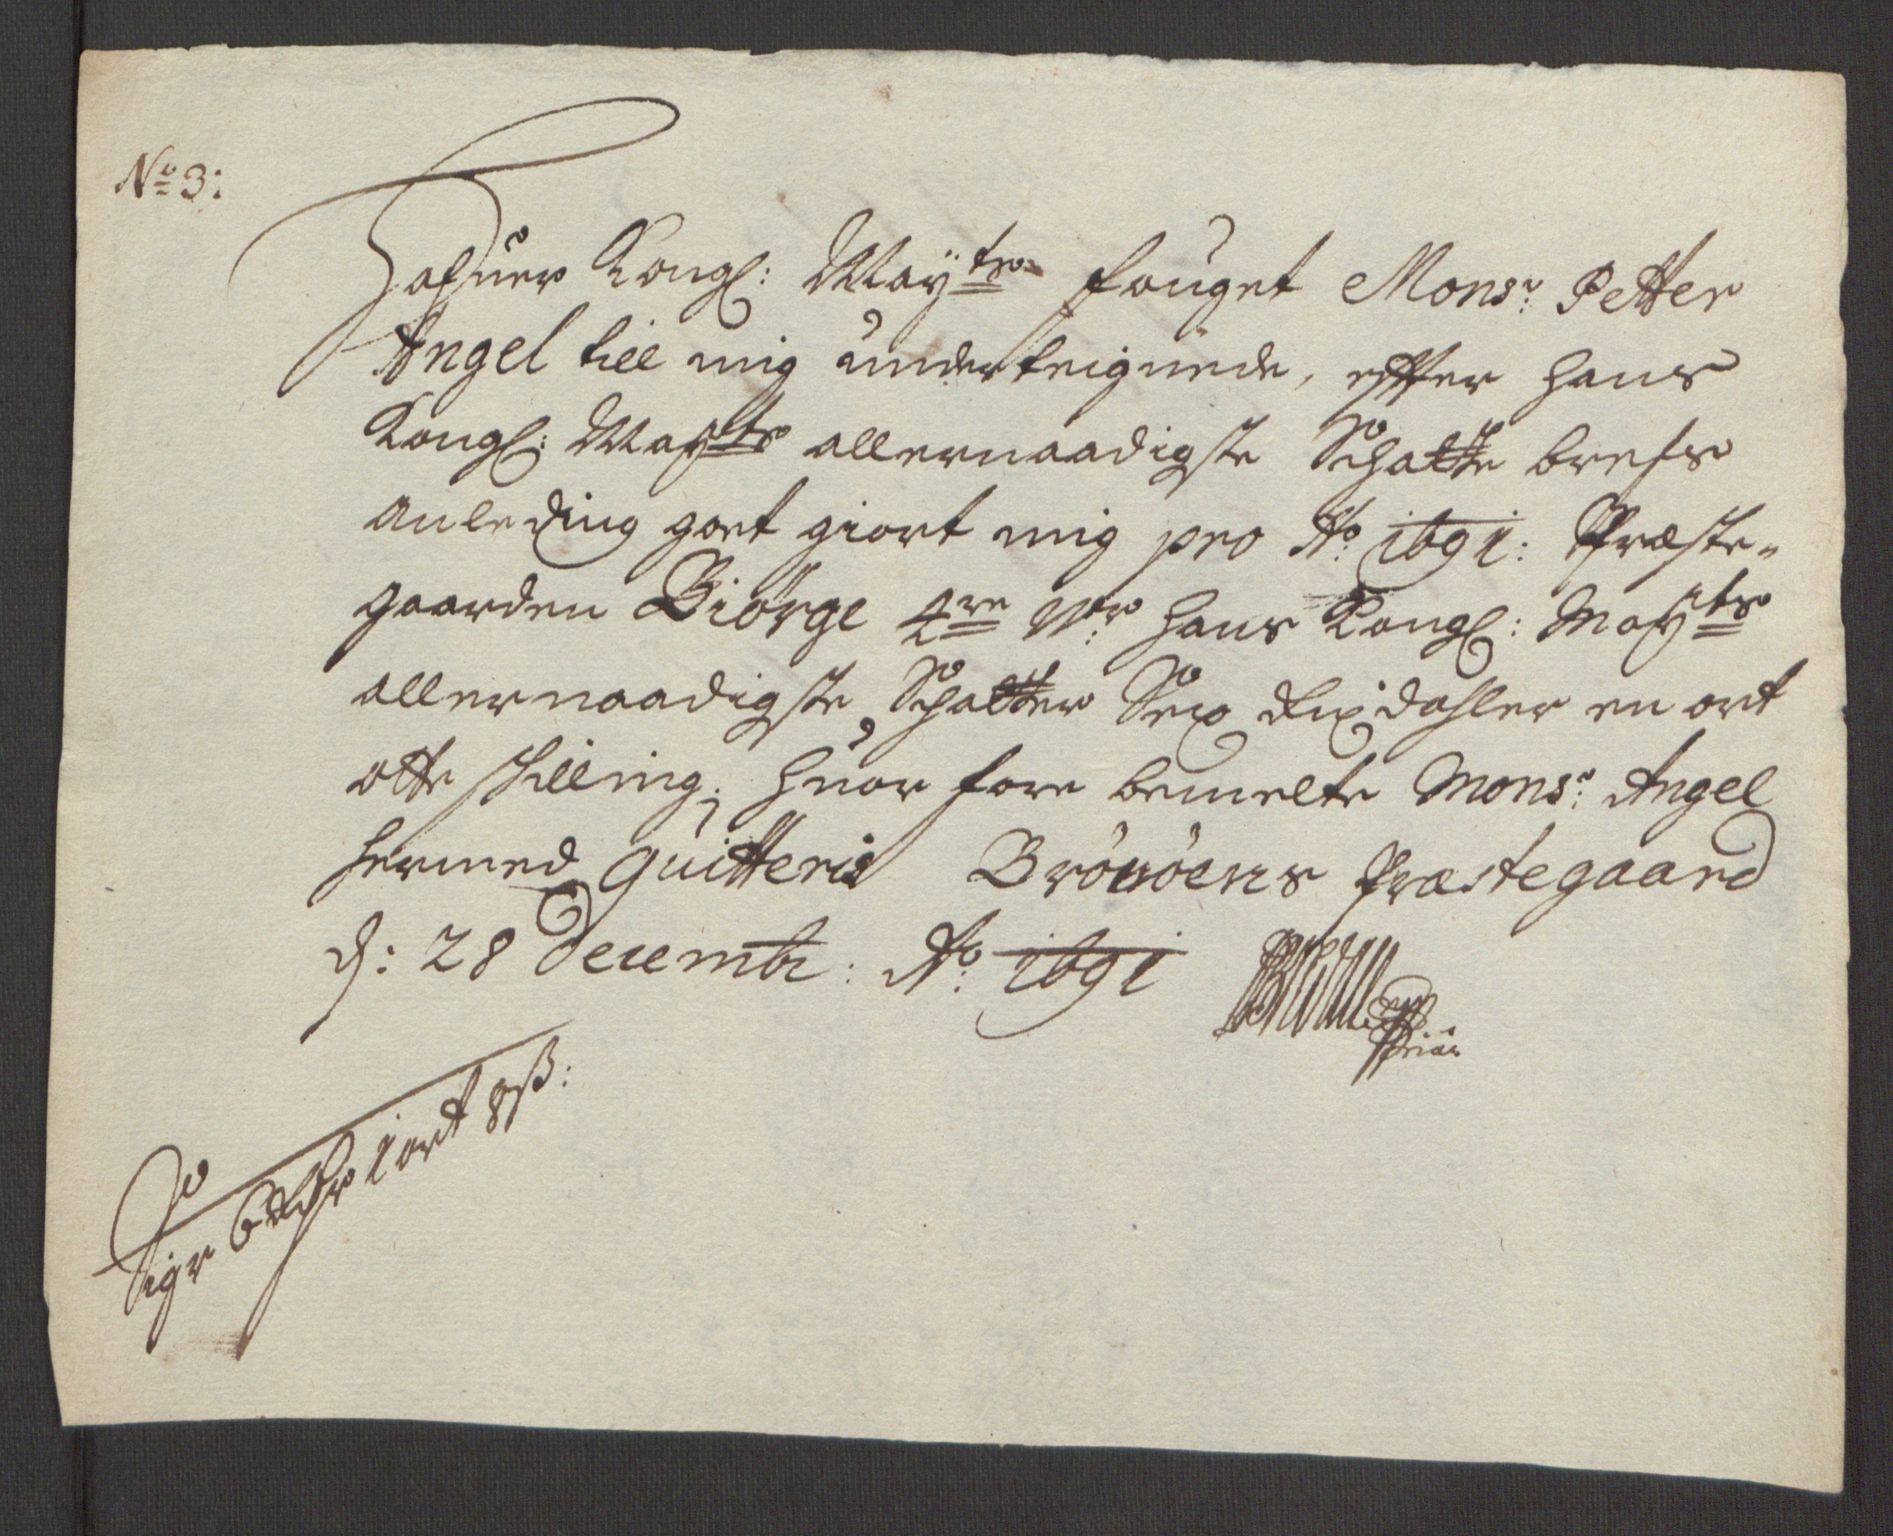 No 3:
Hafuer Kongl: Mayts fouget Monsr: Petter
Angel till mig underteignede, efter hans
Kongl: Mayts allernaadigste Schatte brefs
anleding got giort mig pro Ao: 1691: Præste-
gaarden Biörge hans Kongl: Mayts
allernaadigste Schatter Sex Rixdahler en ort
otte skilling; huor fore bemelte Monsr: Angel
hermed quitteris Brönöens Præstegaard
d: 28 Decembr: Ao: 1691
Siger 6 Rdhr 1 ort 8 ß: